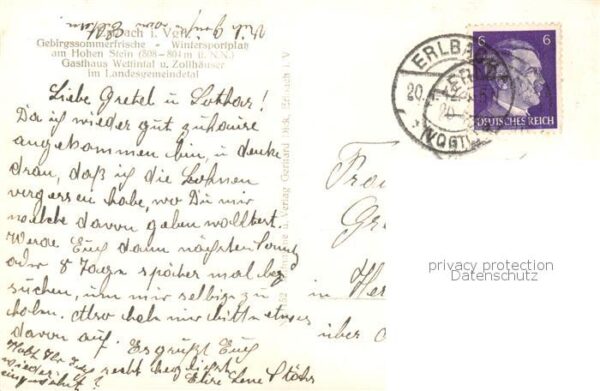 Erlbach i. Vgtl.
Gebirgssommerfrische - Wintersportplatz
am Hohen Stein (508-804 m ü. N.N.)
Gasthaus Wettintal u. Zollhäuser
im Landesgemeindetal
Liebe Gretel u. Lothar!
Da ich wieder gut zuhause
angekommen bin, u. denke
dran, daß ich die Bohnen
vergessen habe, wo Du mir
welche davon geben wolltest.
Werde Euch dann nächsten
oder 8 Tage später mal be
suchen, um mir selbige zu
holen. Also heb mir bitte etwas
davon auf. Es grüßt Euch
recht herzlichst
Eure Lene
Habt Ihr
wieder
u. Verlag Gerhard
Erlbach i. V.
ERLBACH
20
(VOGTL)
6 6
DEUTSCHES REICH
Frau
in
über
privacy protection
Datenschutz